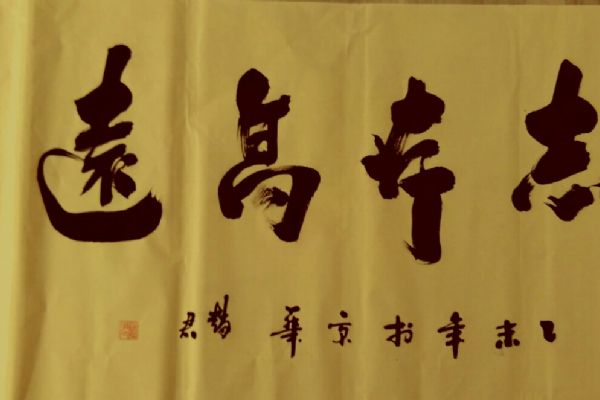 志存高遠
乙未年於京華 君